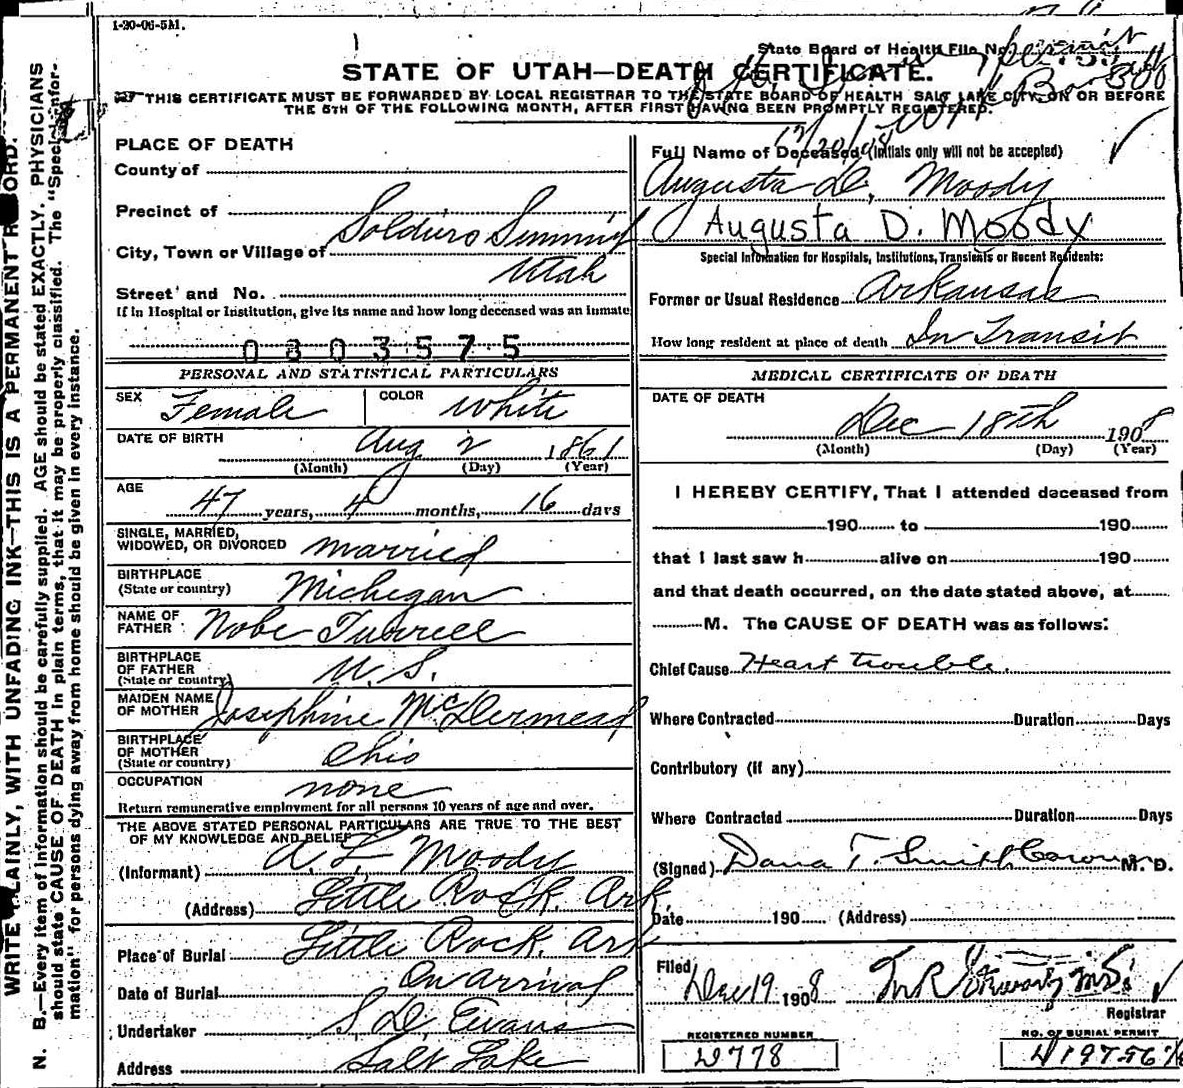 1-20-06-5M.
State Board of Health File No.
STATE OF UTAH—DEATH CERTIFICATE.
THIS CERTIFICATE MUST BE FORWARDED BY LOCAL REGISTRAR TO THE STATE BOARD OF HEALTH SALT LAKE CITY, ON OR BEFORE
THE 5TH OF THE FOLLOWING MONTH, AFTER FIRST HAVING BEEN PROMPTLY REGISTERED.
WRITE PLAINLY, WITH UNFADING INK—THIS IS A PERMANENT RECORD.
N. B.—Every item of information should be carefully supplied. AGE should be stated EXACTLY. PHYSICIANS
should state CAUSE OF DEATH in plain terms, that it may be properly classified. The "Special Infor-
mation" for persons dying away from home should be given in every instance.
PLACE OF DEATH
County of
Precinct of
City, Town or Village of Soldiers Summit
Utah
Street and No.
If in Hospital or Institution, give its name and how long deceased was an inmate
0803575
PERSONAL AND STATISTICAL PARTICULARS
SEX Female COLOR White
DATE OF BIRTH Aug 2 1861
(Month) (Day) (Year)
AGE
47 years, 4 months, 16 days
SINGLE, MARRIED,
WIDOWED, OR DIVORCED married
BIRTHPLACE
(State or country) Michigan
NAME OF
FATHER Nobe
BIRTHPLACE
OF FATHER
(State or country) U. S.
MAIDEN NAME
OF MOTHER Josephine
BIRTHPLACE
OF MOTHER
(State or country) Ohio
OCCUPATION none
Return remunerative employment for all persons 10 years of age and over.
THE ABOVE STATED PERSONAL PARTICULARS ARE TRUE TO THE BEST
OF MY KNOWLEDGE AND BELIEF
(Informant) A L Moody
(Address) Little Rock. Ark
Place of Burial Little Rock. Ark
Date of Burial On arrival
Undertaker S. D. Evans
Address Salt Lake
Full Name of Deceased (Initials only will not be accepted)
Augusta D. Moody
Augusta D. Moody
Special Information for Hospitals, Institutions, Transients or Recent Residents:
Former or Usual Residence Arkansas
How long resident at place of death In Transit
MEDICAL CERTIFICATE OF DEATH
DATE OF DEATH
Dec 18th 1908
(Month) (Day) (Year)
I HEREBY CERTIFY, That I attended deceased from
190 to 190
that I last saw h alive on 190
and that death occurred, on the date stated above, at
M. The CAUSE OF DEATH was as follows:
Chief Cause Heart trouble.
Where Contracted Duration Days
Contributory (if any)
Where Contracted Duration Days
(Signed) Dana T. Smith Coroner M. D.
Date 190 (Address)
Filed Dec 19 1908
Registrar
REGISTERED NUMBER
NO. OF BURIAL PERMIT